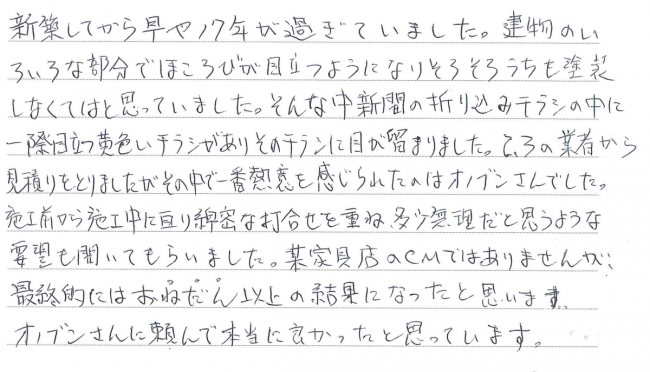 新築してから早や17年が過ぎていました。建物のい
ろいろな部分でほころびが目立つようになりそろそろうちも塗装
しなくてはと思っていました。そんな中新聞の折り込みチラシの中に
一際目立つ黄色いチラシがありそのチラシに目が留まりました。2、3の業者から
見積りをとりましたがその中で一番熱意を感じられたのはオノブンさんでした。
施工前から施工中に亘り綿密な打合せを重ね多少無理だと思うような
要望も聞いてもらいました。某家具店のCMではありませんが、
最終的にはおねだん以上の結果になったと思います。
オノブンさんに頼んで本当に良かったと思っています。